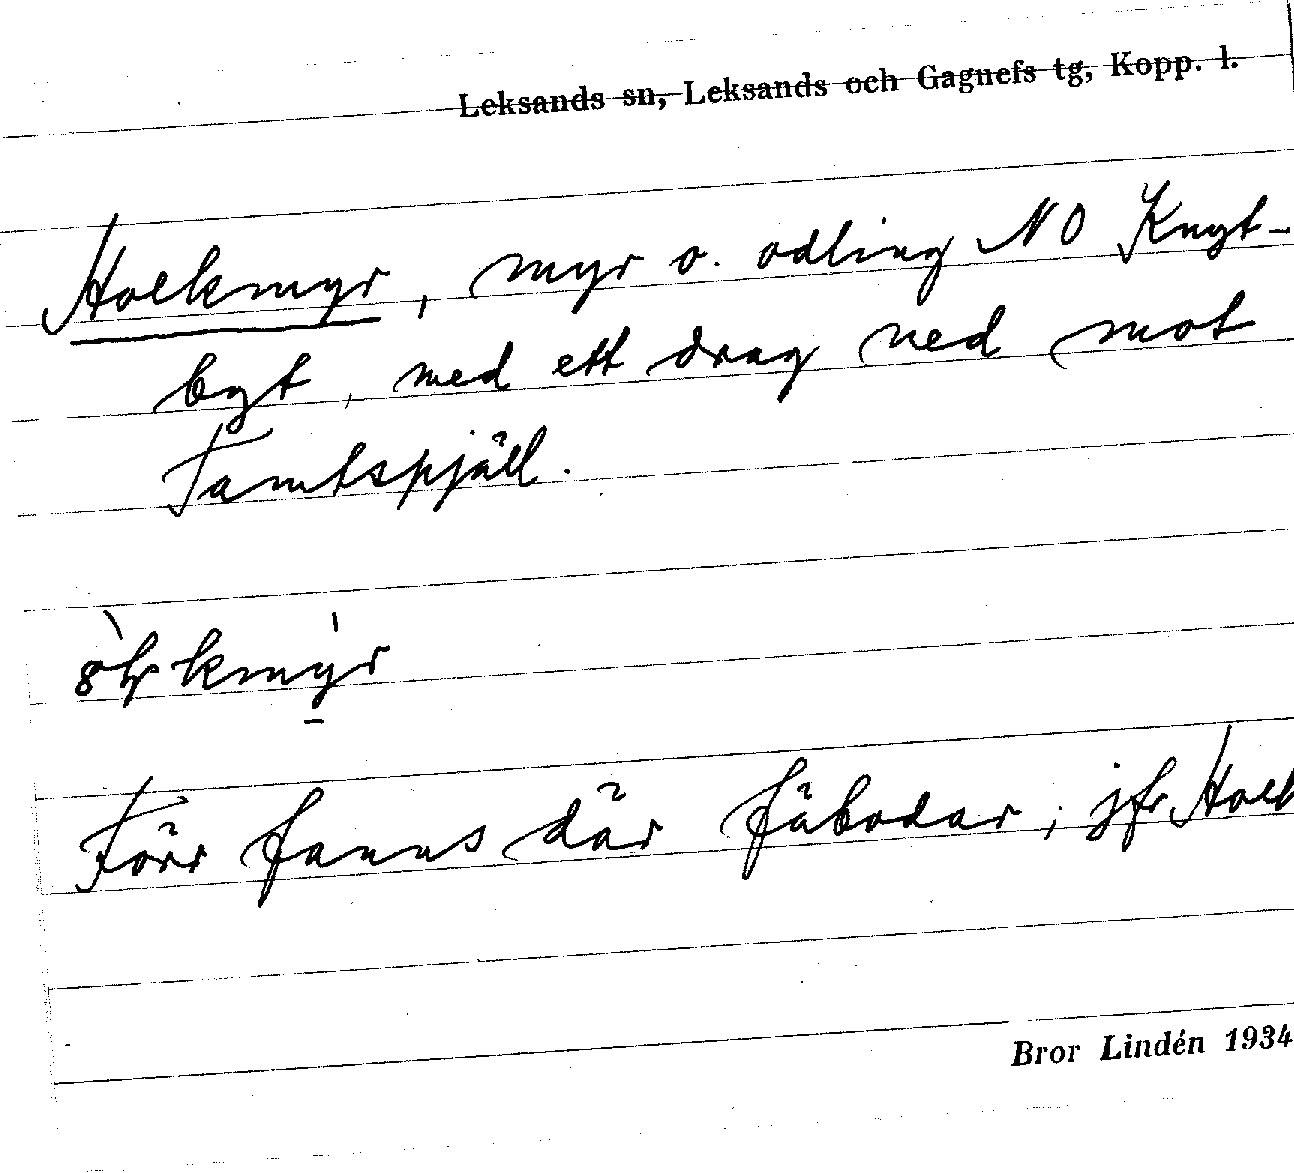 Leksands sn, Leksands och Gagnefs tg, Kopp. l.
Holkmyr, myr o. odling NO Knyt-
byt, med ett drag ned mot
Tamtspjäll.
Förr fanns där fäbodar; jfr Holk
Bror Lindén 1934